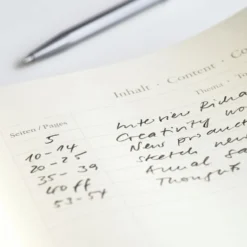 Inhalt · Content · Co
Seiten / Pages
5 Interview Richa
10-14 Creativity wo
20-25 New product
35-39 Sketch new
40 ff Annual sa
53-54 Thoughts